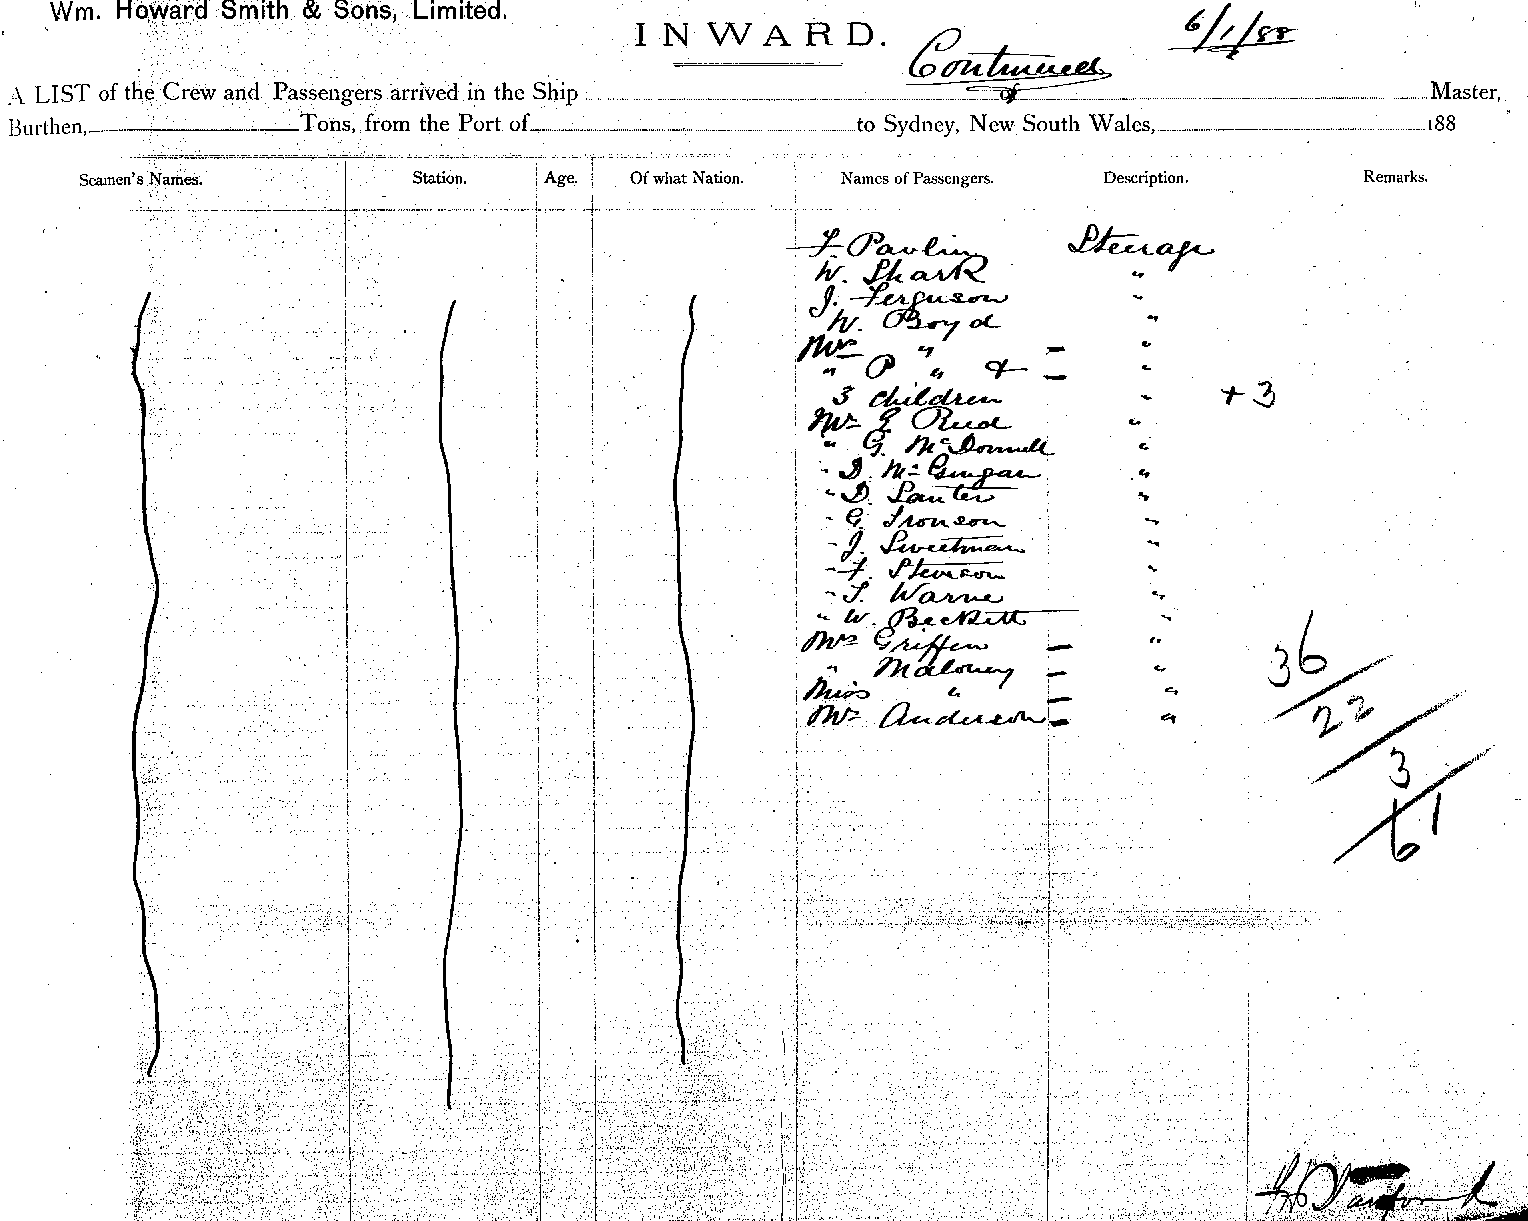 Wm. Howard Smith & Sons, Limited.
INWARD.
6/1/88
Continued
A LIST of the Crew and Passengers arrived in the Ship of Master,
Burthen, Tons, from the Port of to Sydney, New South Wales, 188
Seamen's Names. Station. Age. Of what Nation. Names of Passengers. Description. Remarks.
F. Pavlin Steerage
W. Shark "
J. Ferguson "
W. Boyd "
Mrs " — "
" P " & — "
3 children " + 3
Mr E Reed "
" G. McDonnell "
" D. "
" D. Santer "
" G. Ironson "
" J. Sweetman "
" F. Stevenson "
" T. Warne "
" W. Beckett "
Mrs Griffen — "
" Maloney — "
Miss " — "
Mrs Anderson — "
36
22
3
61